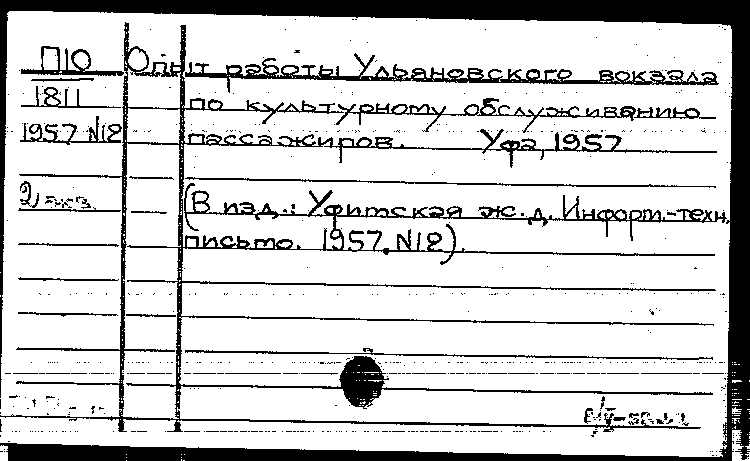 П10 Опыт работы Ульяновского вокзала
1811 по культурному обслуживанию
1957 №12 пассажиров. Уфа, 1957
2 экз. (В изд.: Уфимская ж.д. Информ.-техн.
письмо. 1957. №12).